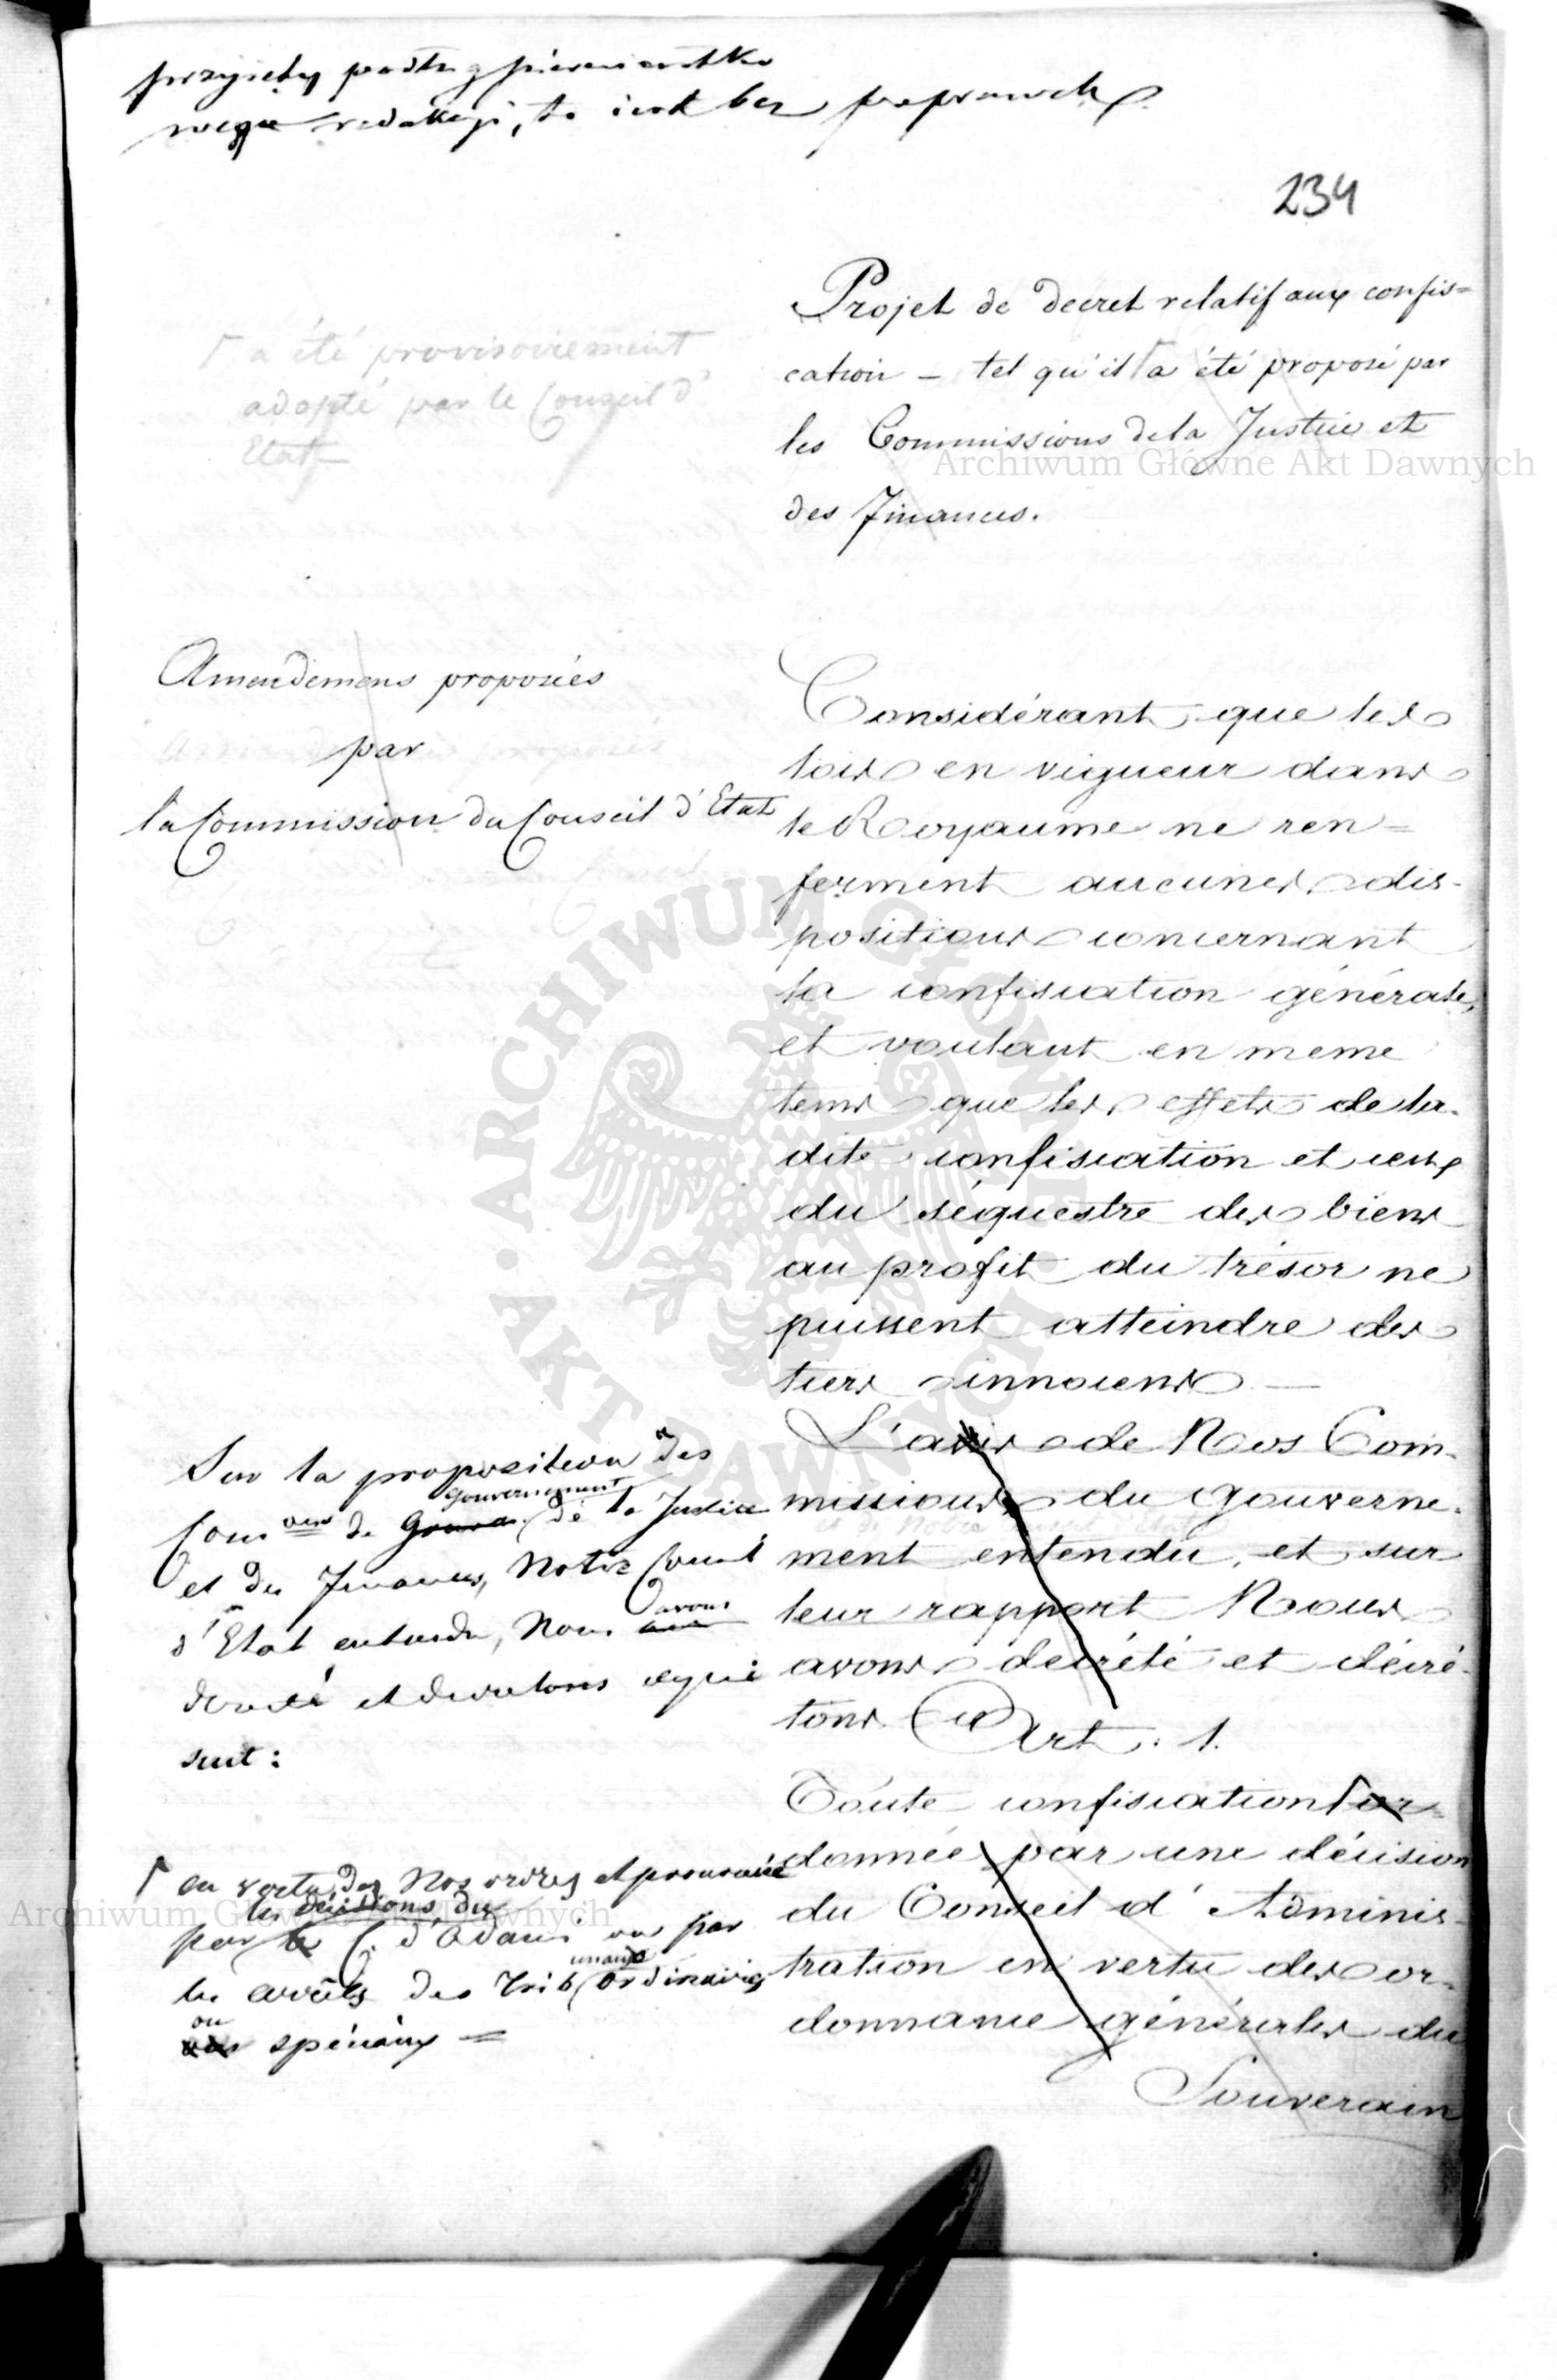 przyjęty podług pierwiastko
wego redakcji, to iest bez poprawek
234
Projet de decret relatif aux confis=
cation – tel qu'il a été proposé par
les Commissions de la Justice et
des Finances.
Γ a été provisoirement
adopté par le Conseil d'
Etat –
Amendemens proposées
par
la Commission du Conseil d'Etat
Considérant que les
lois en vigueur dans
le Royaume ne ren=
ferment aucunes dis-
positions concernant
la confiscation générale,
et voulant en meme
tems que les effets de la-
dite confiscation et ceux
du séquestre des biens
au profit du trésor ne
puissent atteindre des
tiers innocens —
L'avis de Nos Com-
missions du Gouverne-
ment entendu, et sur
leur rapport Nous
avons decrété et décré-
tons
Sur la proposition des
gouvernement
Com ons de de la Justice
et des Finances, Notre Conseil
avons
d'Etat entendu, Nous
decreté et decretons cequi
suit:
Art. 1.
Toute confiscation Γ or-
donnée par une décision
du Conseil d'Adminis-
tration en vertu des or-
donnance générales du
Souverain
Γ en vertu de Nos ordres et prononcée
les décisions du
par le C. d'Admi: ou par
unaux
les arrêts des Trib ordinaires
ou
spéciaux =
Archiwum Główne Akt Dawnych
ARCHIWUM GŁÓWNE AKT DAWNYCH
Archiwum Główne Akt Dawnych